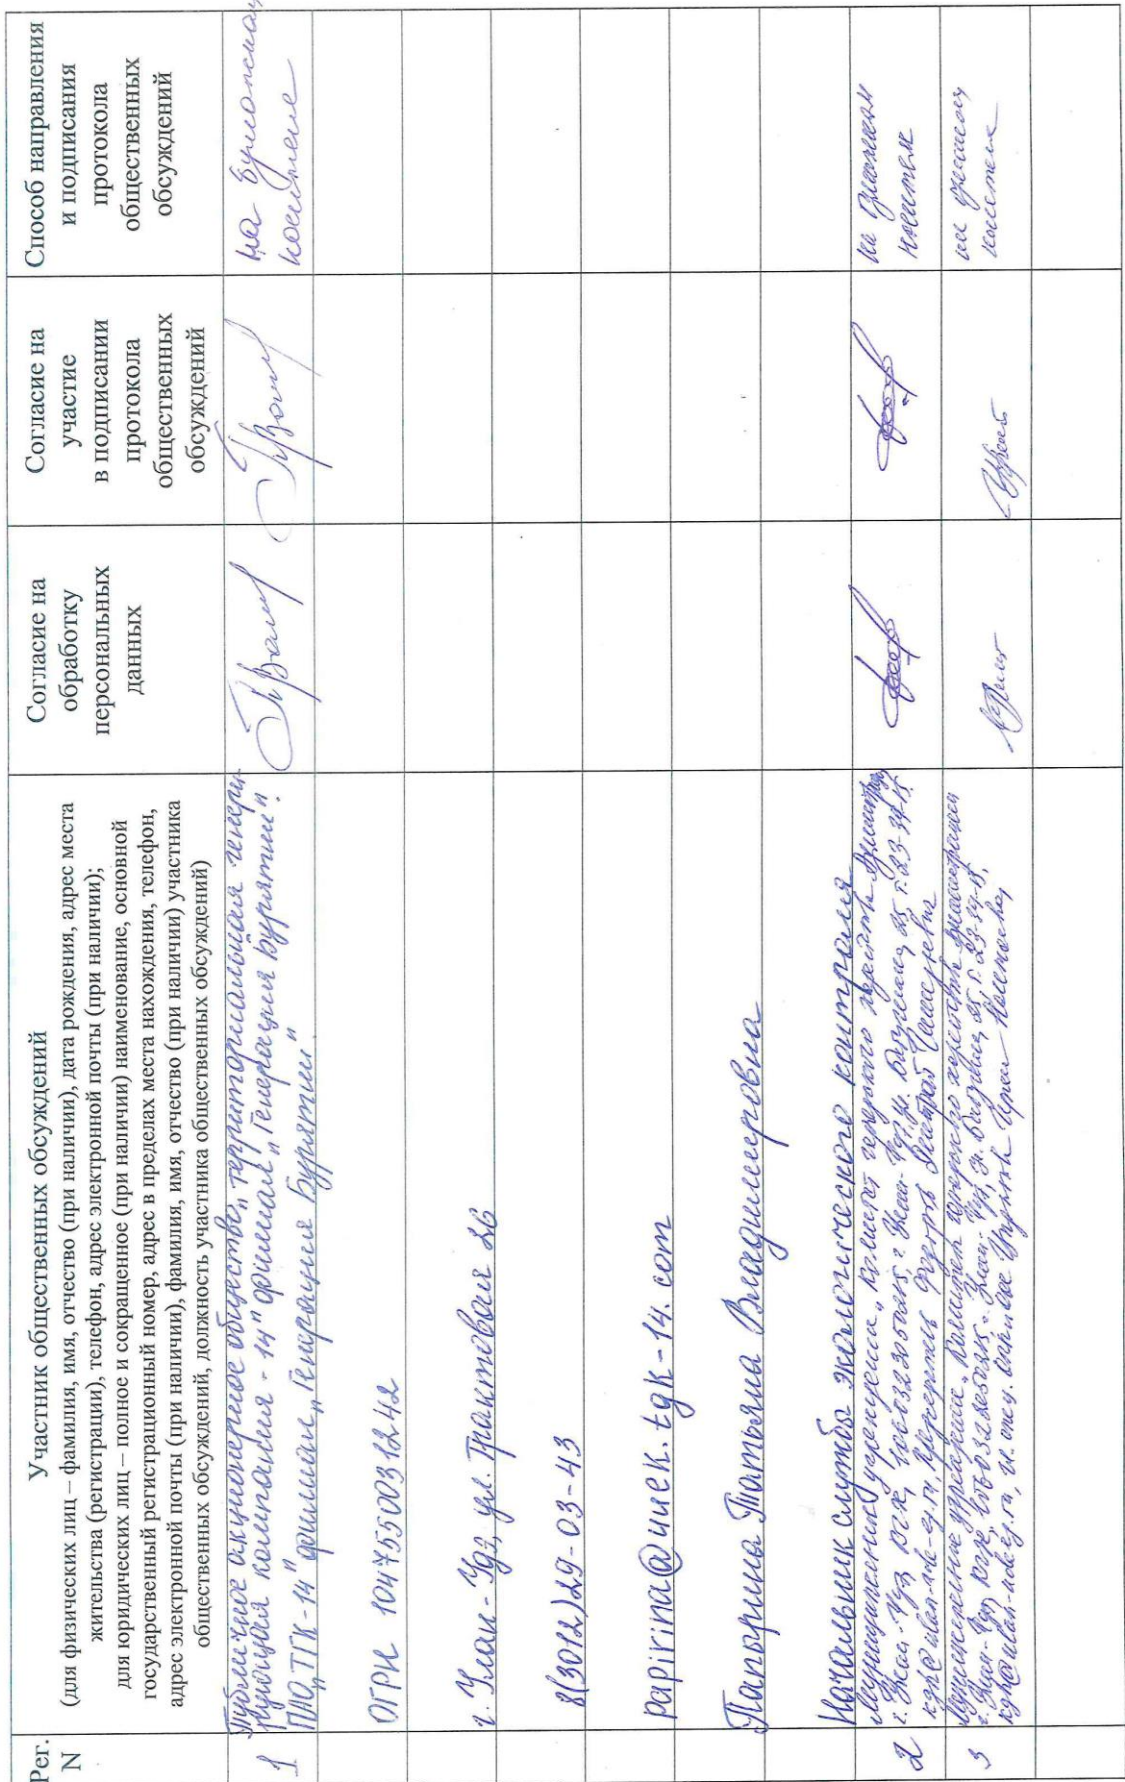 Рег.
N
Участник общественных обсуждений
(для физических лиц – фамилия, имя, отчество (при наличии), дата рождения, адрес места
жительства (регистрации), телефон, адрес электронной почты (при наличии);
для юридических лиц – полное и сокращенное (при наличии) наименование, основной
государственный регистрационный номер, адрес в пределах места нахождения, телефон,
адрес электронной почты (при наличии), фамилия, имя, отчество (при наличии) участника
общественных обсуждений, должность участника общественных обсуждений)
Согласие на
обработку
персональных
данных
Согласие на
участие
в подписании
протокола
общественных
обсуждений
Способ направления
и подписания
протокола
общественных
обсуждений
1
Публичное акционерное общество „территориальная генери
рующая компания - 14" филиал „Генерация Бурятии".
ПАО „ТГК-14" филиал „Генерация Бурятии"
на бумажном
носителе
ОГРН 1047550031242
г. Улан-Удэ, ул. Трактовая 2б
8(3012)29-03-43
papirina@uuek.tgk-14.com
Папырина Татьяна Владимировна
Начальник службы экологического контроля
2
Муниципальное учреждение „Комитет городского хозяйства
г. Улан-Удэ г. Улан-Удэ, 25, т. 23-34-15
Федоров Дмитрий
на бумажном
носителе
3
Муниципальное учреждение „Комитет городского хозяйства Администрации
г. Улан-Удэ г. Улан-Удэ, 25, т. 23-34-15,
на бумажном
носителе